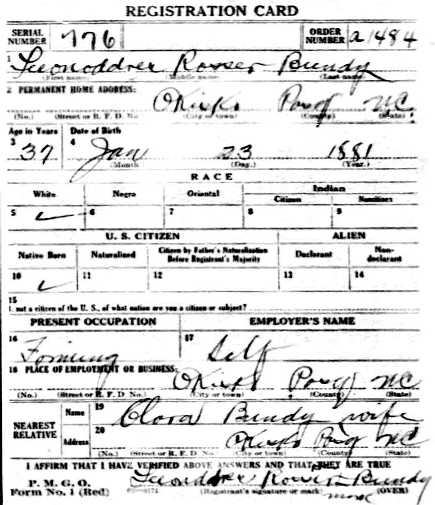 REGISTRATION CARD
SERIAL NUMBER 776 ORDER NUMBER a 1484
1 Leonoddrer Rosser Bundy
(First name) (Middle name) (Last name)
2 PERMANENT HOME ADDRESS:
Okisko Pasq NC
(No.) (Street or R. F. D. No.) (City or town) (County) (State)
Age in Years Date of Birth
3 37 4 Jan 23 1881
(Month) (Day.) (Year.)
RACE
White Negro Oriental Indian
Citizen
5 ✓ 6 7 8 9
U. S. CITIZEN ALIEN
Native Born Naturalized Citizen by Father's Naturalization Before Registrant's Majority Declarant Non-declarant
10 ✓ 11 12 13 14
15
not a citizen of the U. S., of what nation are you a citizen or subject?
PRESENT OCCUPATION EMPLOYER'S NAME
16 Forming 17 Self
18 PLACE OF EMPLOYMENT OR BUSINESS:
Okisko Pasq NC
(No.) (Street or R. F. D. No.) (City or town) (County) (State)
NEAREST RELATIVE Name 19 Clora Bundy wife
Address 20 Okisko Pasq NC
(No.) (Street or R. F. D. No.) (City or town) (County) (State)
I AFFIRM THAT I HAVE VERIFIED ABOVE ANSWERS AND THAT THEY ARE TRUE
P. M. G. O.
Form No. 1 (Red) Bundy
(Registrant's signature or mark) (OVER)